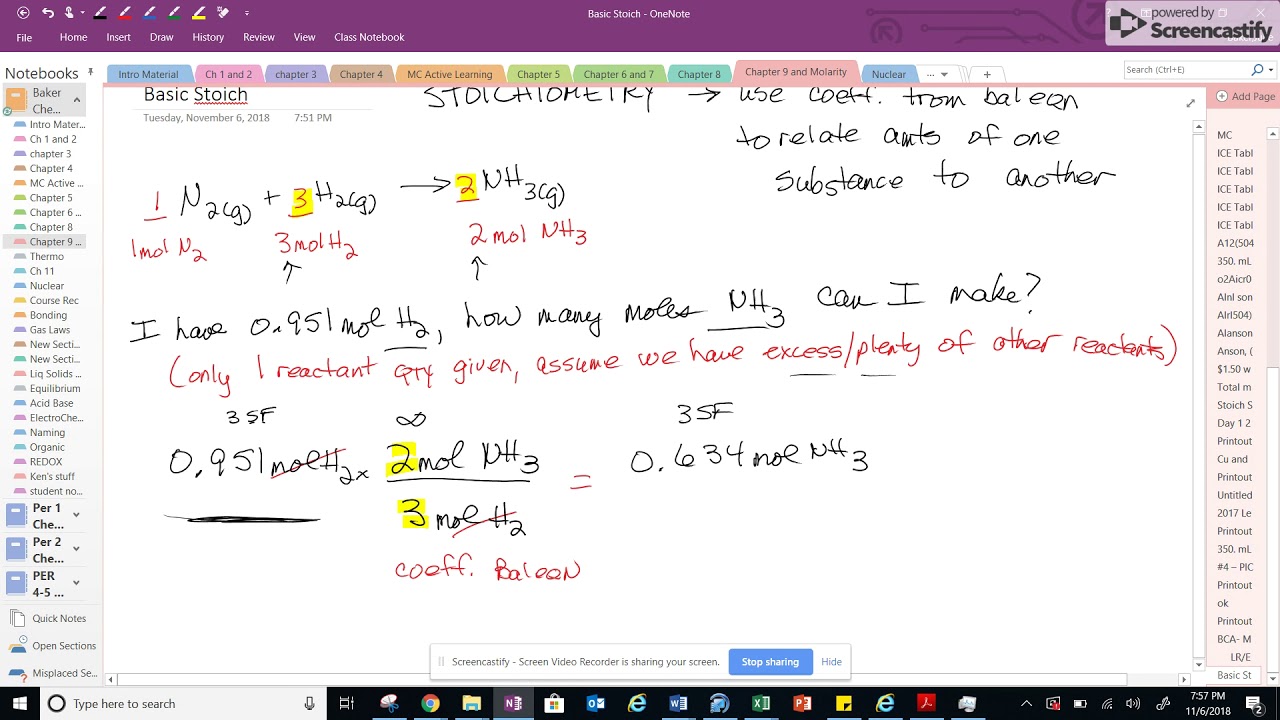 Basic Stoich - OneNote
powered by
Screencastify
File Home Insert Draw History Review View Class Notebook
Notebooks
Intro Material Ch 1 and 2 chapter 3 Chapter 4 MC Active Learning Chapter 5 Chapter 6 and 7 Chapter 8 Chapter 9 and Molarity Nuclear ... +
Search (Ctrl+E)
Baker
Che...
Intro Mater...
Ch 1 and 2
chapter 3
Chapter 4
MC Active ...
Chapter 5
Chapter 6 ...
Chapter 8
Chapter 9 ...
Thermo
Ch 11
Nuclear
Course Rec
Bonding
Gas Laws
New Secti...
New Secti...
Liq Solids ...
Equilibrium
Acid Base
ElectroChe...
Naming
Organic
REDOX
Ken's stuff
student no...
Per 1
Che...
Per 2
Che...
PER
4-5 ...
Quick Notes
Open Sections
Misplaced Se...
Basic Stoich
Tuesday, November 6, 2018 7:51 PM
STOICHIOMETRY → use coeff. from baleqn
to relate amts of one
substance to another
1 N2(g) + 3 H2(g) → 2 NH3(g)
1mol N2 3mol H2 2mol NH3
↑ ↑
I have 0.951mol H2, how many moles NH3 can I make?
(only 1 reactant qty given, assume we have excess/plenty of other reactants)
3SF ∞ 3SF
0.951molH2 x 2mol NH3 = 0.634mol NH3
3 mol H2
coeff. Baleqn
Add Page
MC
ICE Tabl
ICE Tabl
ICE Tabl
ICE Tabl
ICE Tabl
A12(504
350. mL
o2Aicr0
AlnI son
AlrI504)
Alanson
Anson, (
$1.50 w
Total m
Stoich S
Day 1 2
Printout
Cu and
Printout
Untitled
2017 Le
Printout
350. mL
#4 – PIC
Printout
ok
Printout
BCA- M
LR/E
Basic St
Screencastify - Screen Video Recorder is sharing your screen. Stop sharing Hide
Type here to search
7:57 PM
11/6/2018